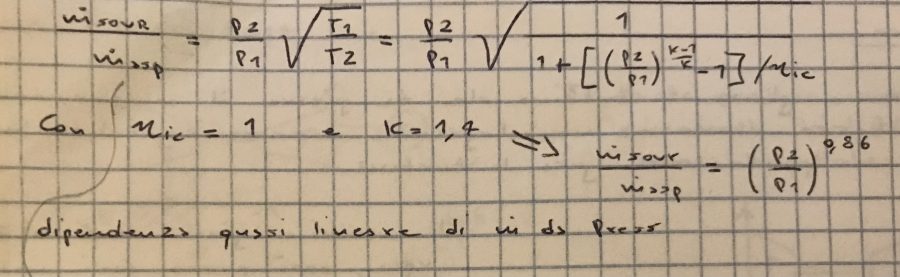 ṁ sovr / ṁ asp = p2/p1 √(T1/T2) = p2/p1 √(1 / (1 + [(p2/p1)^((k-1)/k) - 1] / ηic))
Con ηic = 1 e K = 1,4 ⇒ ṁ sovr / ṁ asp = (p2/p1)^0,86
dipendenza quasi lineare di ṁ da press